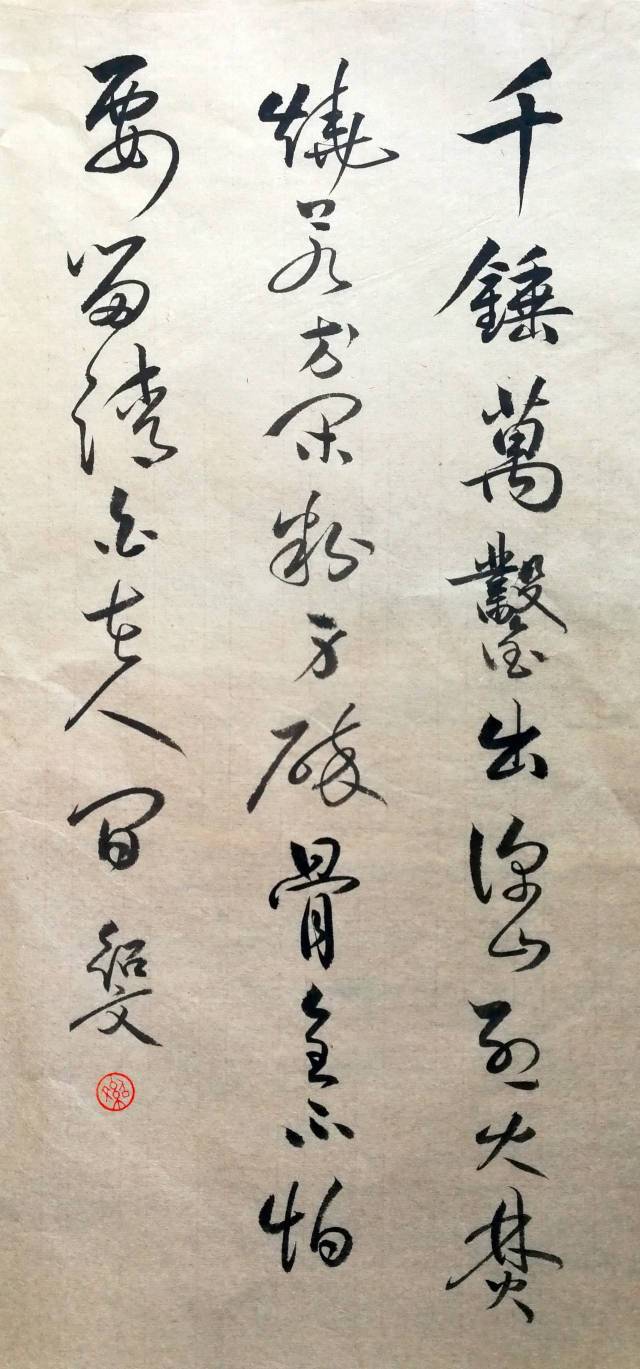 千錘萬鑿出深山烈火焚
燒若等閑粉身碎骨全不怕
要留清白在人間 紹文